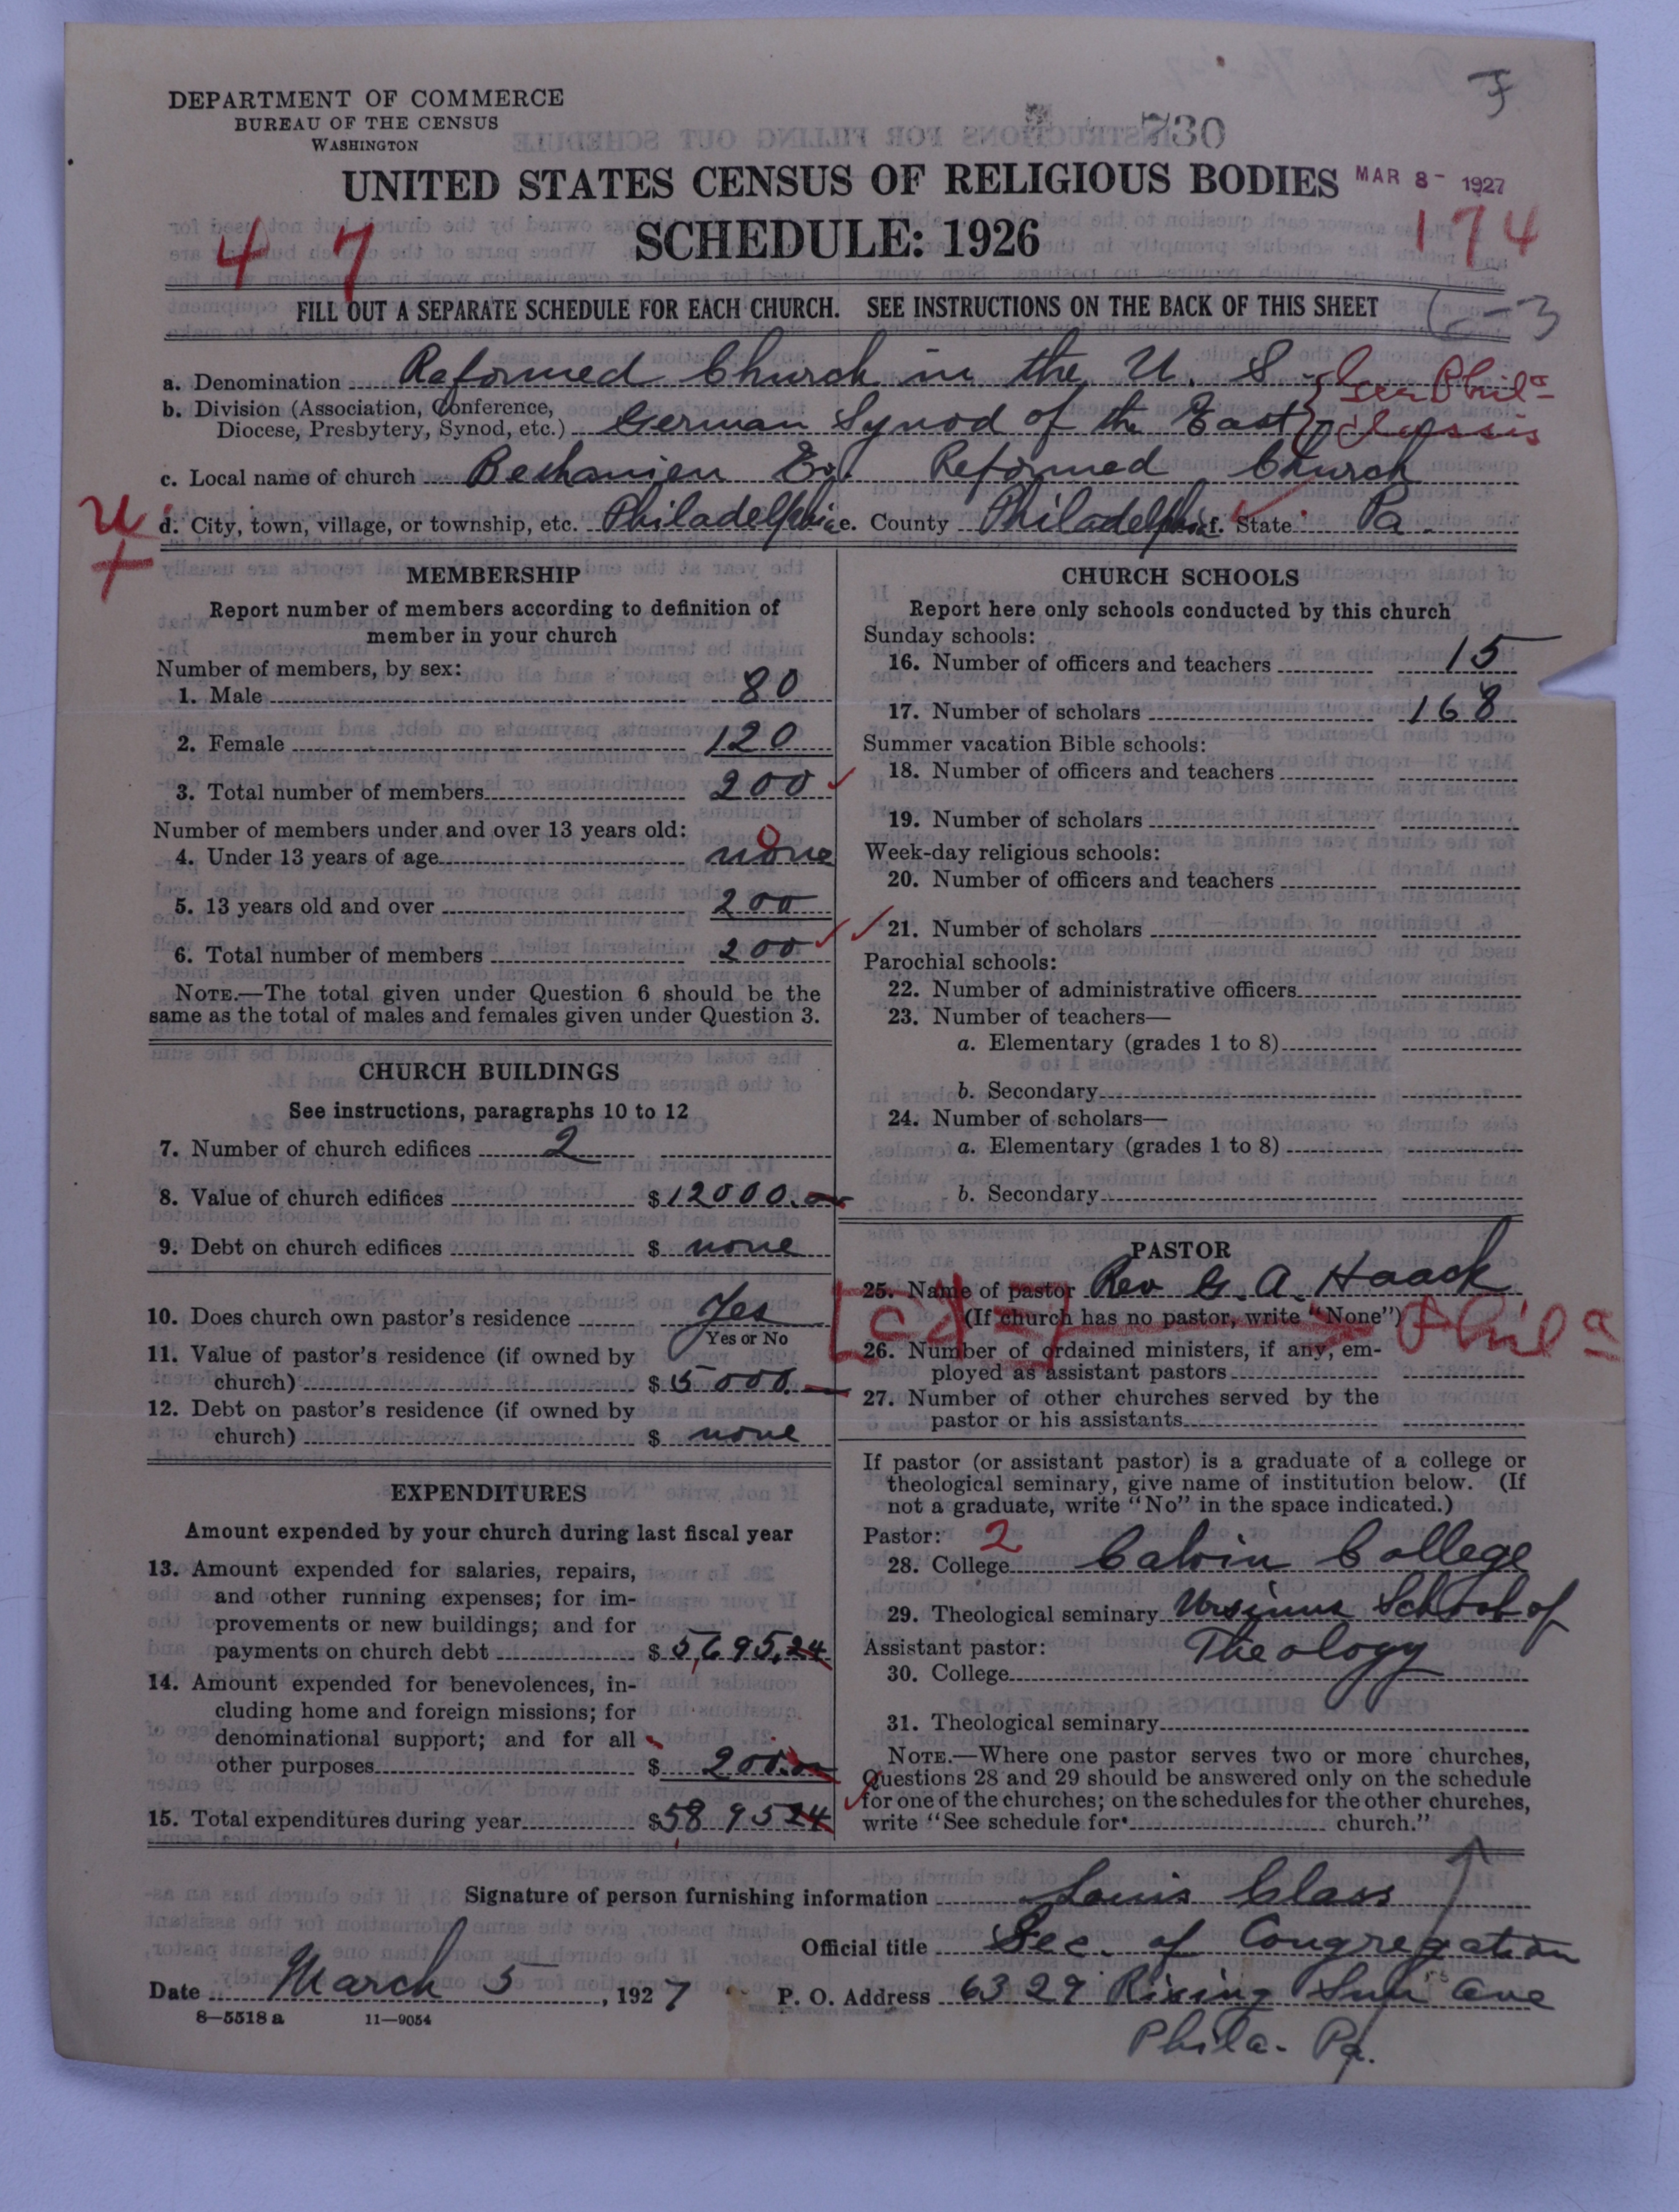 DEPARTMENT OF COMMERCE
BUREAU OF THE CENSUS
WASHINGTON
730
UNITED STATES CENSUS OF RELIGIOUS BODIES
MAR 8 - 1927
SCHEDULE: 1926
4 7
174
FILL OUT A SEPARATE SCHEDULE FOR EACH CHURCH. SEE INSTRUCTIONS ON THE BACK OF THIS SHEET
a. Denomination Reformed Church in the U. S.
b. Division (Association, Conference,
Diocese, Presbytery, Synod, etc.) German Synod of the East
Phila Classis
c. Local name of church Bethanien Ev. Reformed Church
d. City, town, village, or township, etc. Philadelphia e. County Philadelphia f. State Pa.
MEMBERSHIP
Report number of members according to definition of
member in your church
Number of members, by sex:
1. Male 80
2. Female 120
3. Total number of members 200
Number of members under and over 13 years old:
0
4. Under 13 years of age none
5. 13 years old and over 200
6. Total number of members 200
NOTE.—The total given under Question 6 should be the
same as the total of males and females given under Question 3.
CHURCH BUILDINGS
See instructions, paragraphs 10 to 12
7. Number of church edifices 2
8. Value of church edifices $12000.00
9. Debt on church edifices $ none
10. Does church own pastor's residence Yes
Yes or No
11. Value of pastor's residence (if owned by
church) $5000.—
12. Debt on pastor's residence (if owned by
church) $ none
EXPENDITURES
Amount expended by your church during last fiscal year
13. Amount expended for salaries, repairs,
and other running expenses; for im-
provements or new buildings; and for
payments on church debt $5,695,24
14. Amount expended for benevolences, in-
cluding home and foreign missions; for
denominational support; and for all
other purposes $ 200.00
15. Total expenditures during year $5895 24
CHURCH SCHOOLS
Report here only schools conducted by this church
Sunday schools:
16. Number of officers and teachers 15
17. Number of scholars 168
Summer vacation Bible schools:
18. Number of officers and teachers
19. Number of scholars
Week-day religious schools:
20. Number of officers and teachers
21. Number of scholars
Parochial schools:
22. Number of administrative officers
23. Number of teachers—
a. Elementary (grades 1 to 8)
b. Secondary
24. Number of scholars—
a. Elementary (grades 1 to 8)
b. Secondary
PASTOR
25. Name of pastor Rev G. A. Haack
(If church has no pastor, write "None")
Phila
26. Number of ordained ministers, if any, em-
ployed as assistant pastors
27. Number of other churches served by the
pastor or his assistants
If pastor (or assistant pastor) is a graduate of a college or
theological seminary, give name of institution below. (If
not a graduate, write "No" in the space indicated.)
Pastor: 2
28. College Calvin College
29. Theological seminary Ursinus School of
Assistant pastor: Theology
30. College
31. Theological seminary
NOTE.—Where one pastor serves two or more churches,
Questions 28 and 29 should be answered only on the schedule
for one of the churches; on the schedules for the other churches,
write "See schedule for church."
Signature of person furnishing information Louis Class
Official title Sec. of Congregation
Date March 5, 1927 P. O. Address 6329 Rising Sun Ave
8—5518 a 11—9054
Phila. Pa.